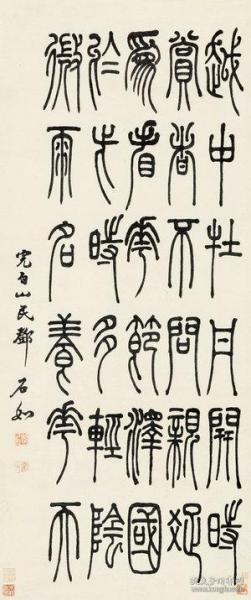 越中牡丹開時
賞者不問親疏
爲看花節澤國
於時多輕陰
微雨名養花天
完白山民鄧石如